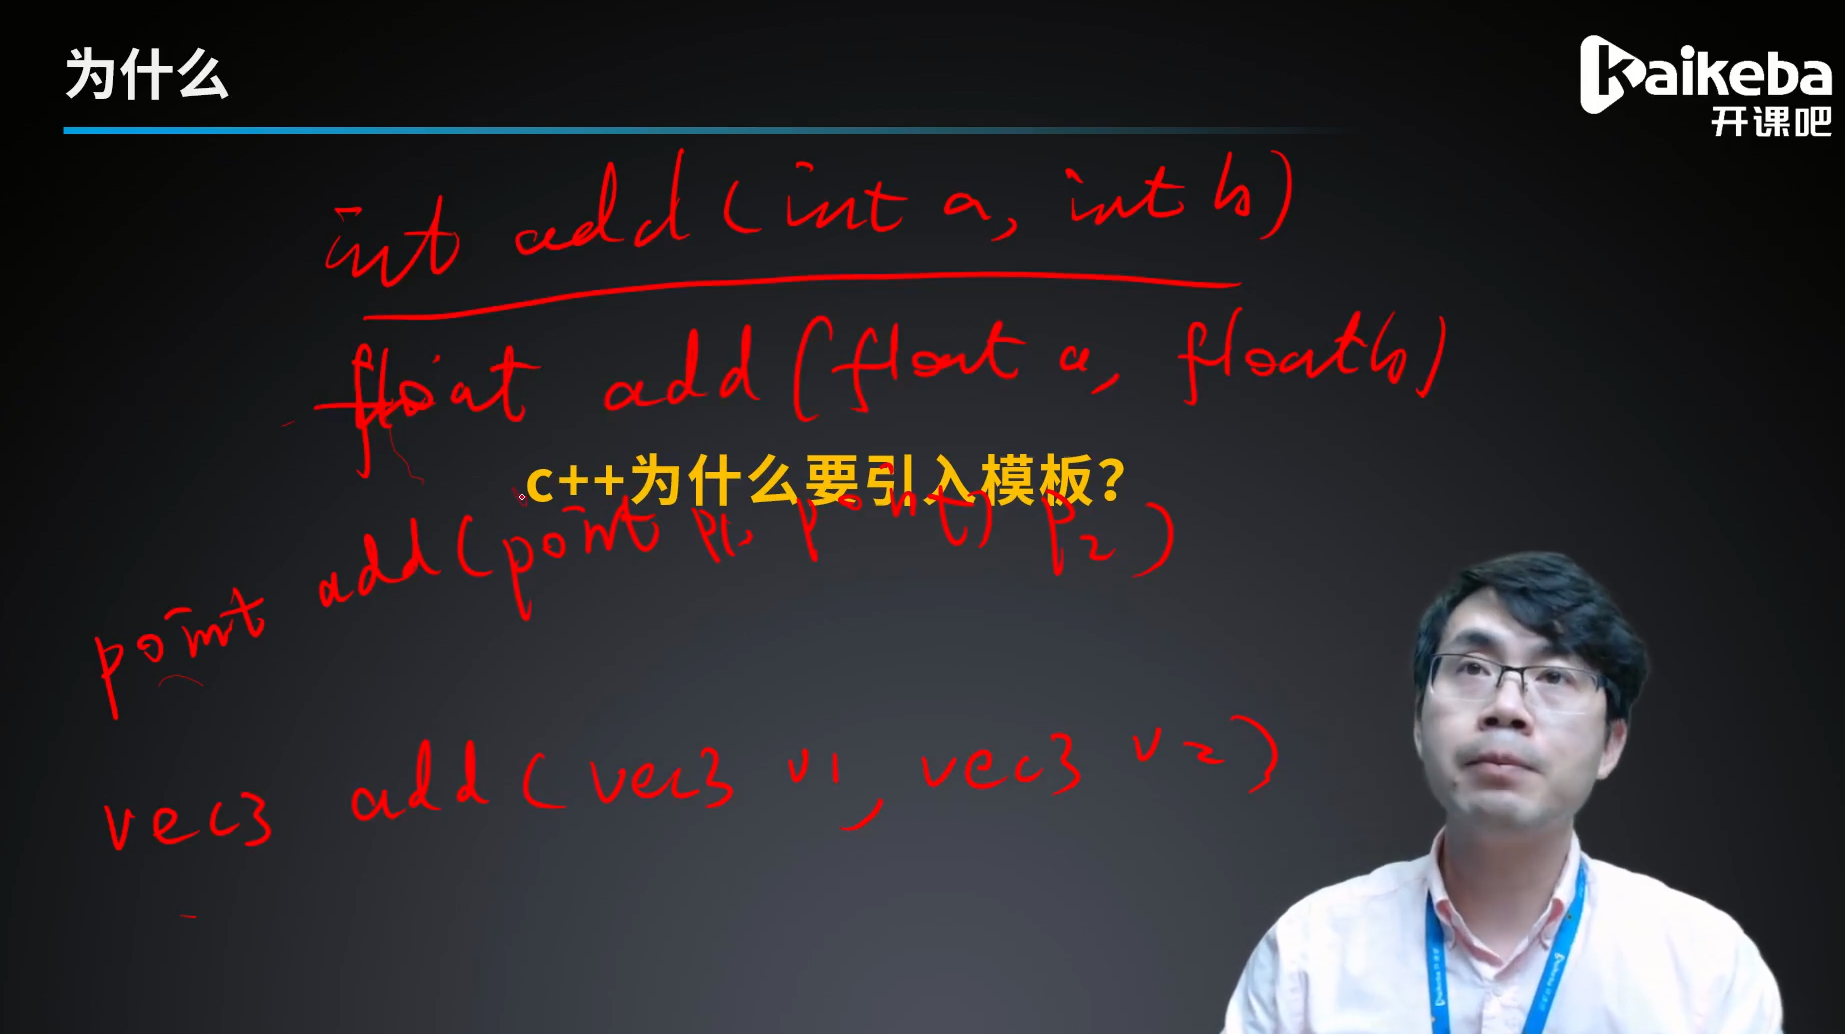 为什么
kaikeba
开课吧
int add(int a, int b)
float add(float a, float b)
c++为什么要引入模板？
point add(point p1, point p2)
vec3 add(vec3 v1, vec3 v2)